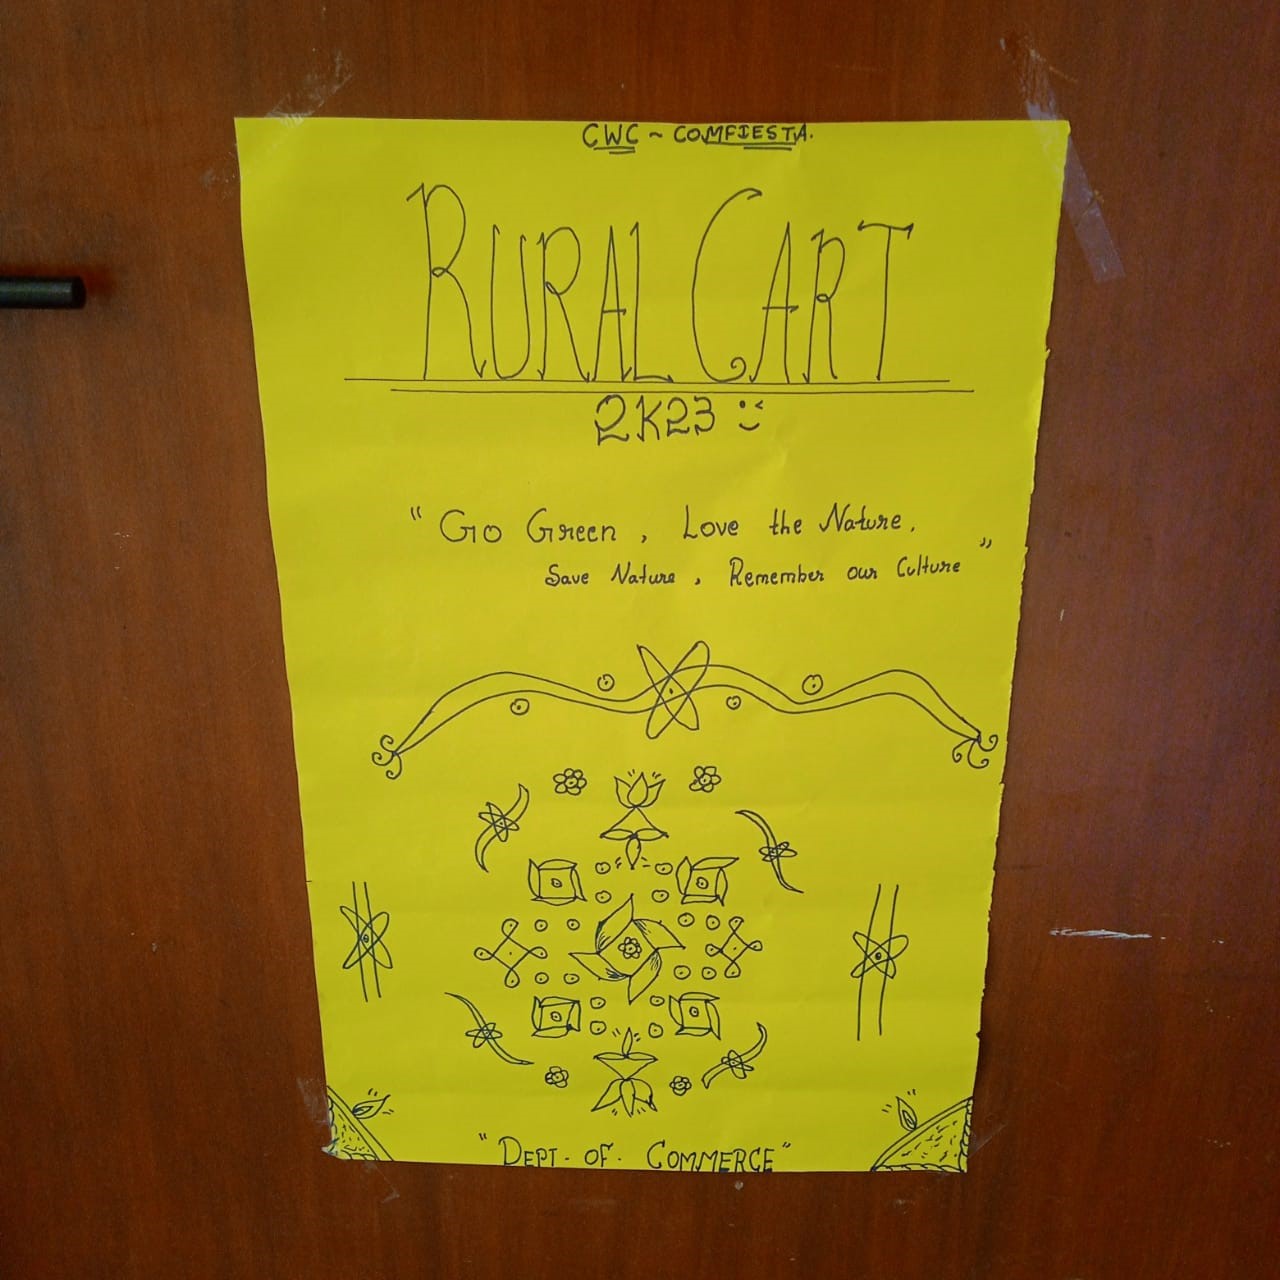 CWC ~ COMFIESTA.
RURAL CART
2K23
" Go Green , Love the Nature.
Save Nature , Remember our Culture "
"DEPT. OF. COMMERCE"